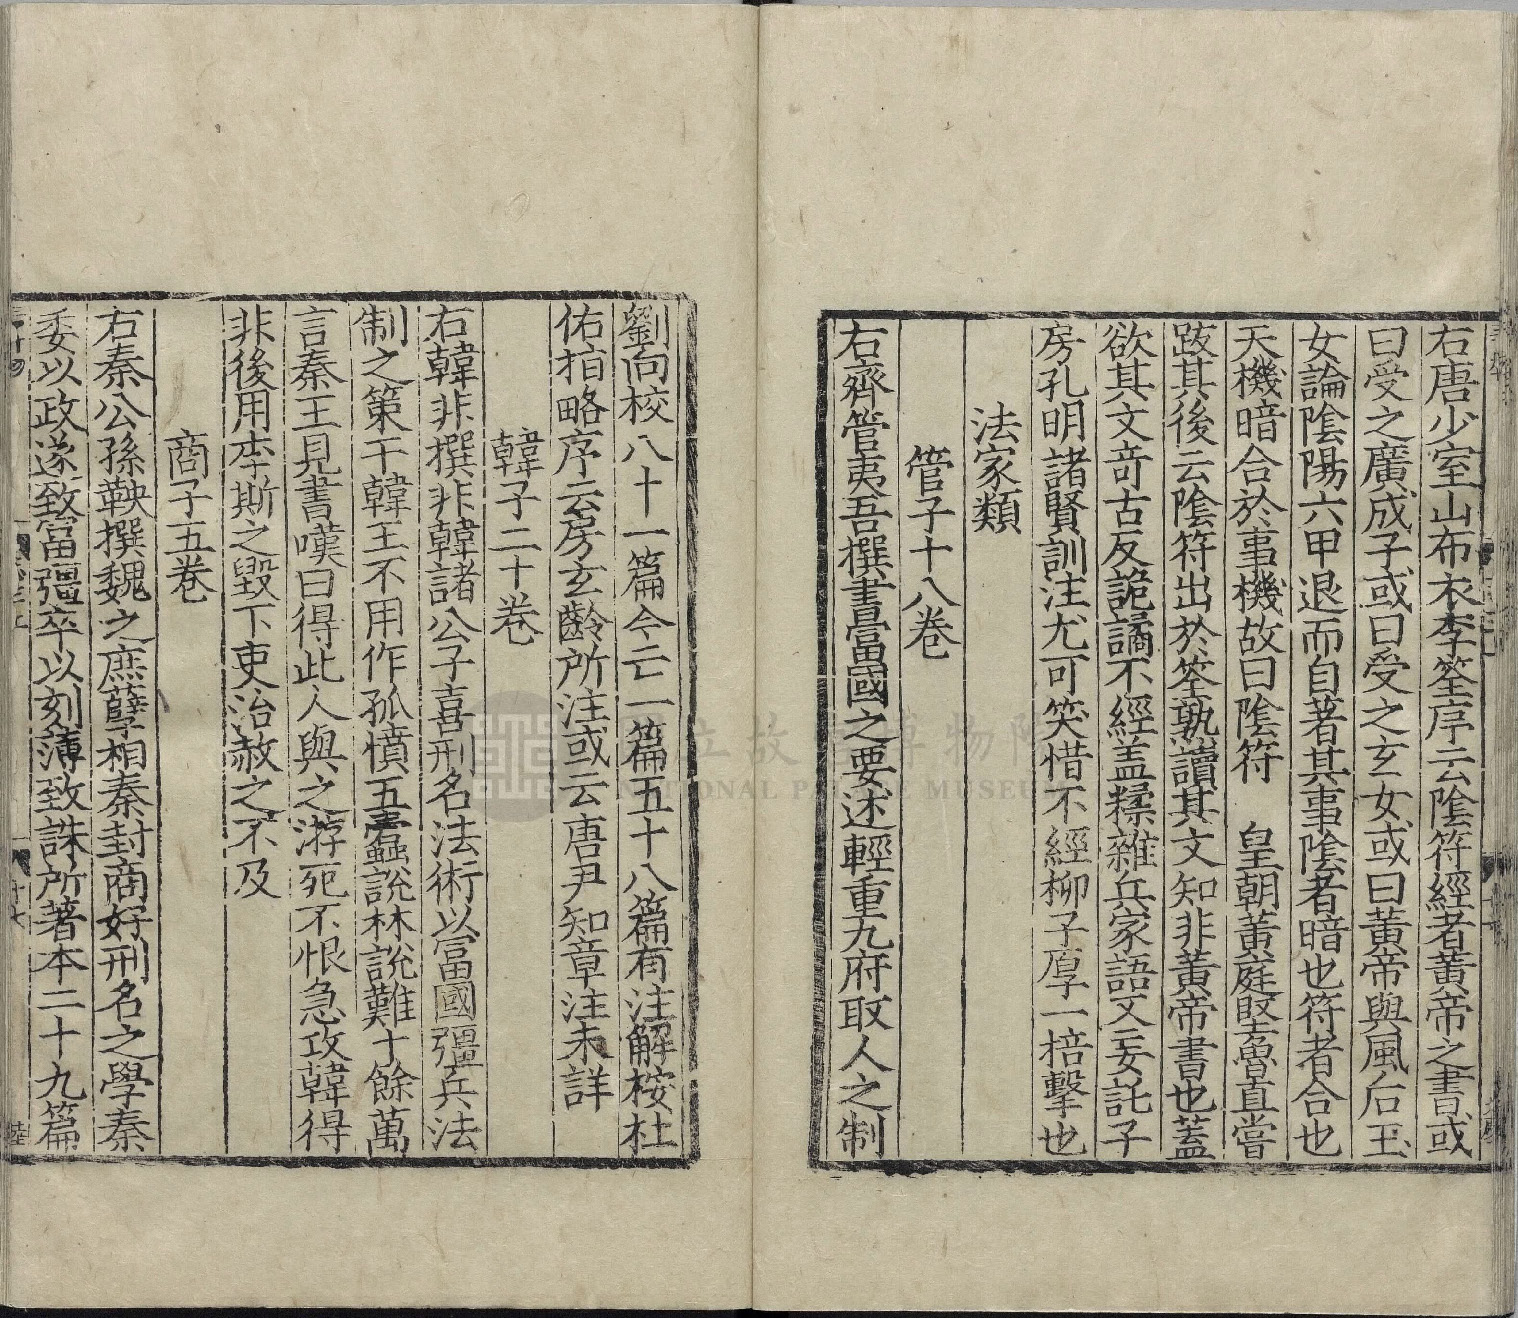 右唐少室山布衣李筌序云陰符經者黄帝之書或
曰受之廣成子或曰受之玄女或曰黄帝與風后玉
女論陰陽六甲退而自著其事陰者暗也符者合也
天機暗合於事機故曰陰符　皇朝黄庭堅魯直嘗
跋其後云陰符出於筌熟讀其文知非黄帝書也蓋
欲其文竒古反詭譎不經盖糅雜兵家語又妄託子
房孔明諸賢訓注尤可笑惜不經柳子厚一掊擊也
法家類
管子十八卷
右齊管夷吾撰書富國之要述輕重九府取人之制
劉向校八十一篇今亡一篇五十八篇有注解桉杜
佑指略序云房玄齡所注或云唐尹知章注未詳
韓子二十卷
右韓非撰非韓諸公子喜刑名法術以富國彊兵法
制之策干韓王不用作孤憤五蠹說林說難十餘萬
言秦王見書嘆曰得此人與之游死不恨急攻韓得
非後用李斯之毀下吏治赦之不及
商子五卷
右秦公孫鞅撰魏之庶孽相秦封商好刑名之學秦
委以政遂致富彊卒以刻薄致誅所著本二十九篇
國立故宮博物院
NATIONAL PALACE MUSEUM